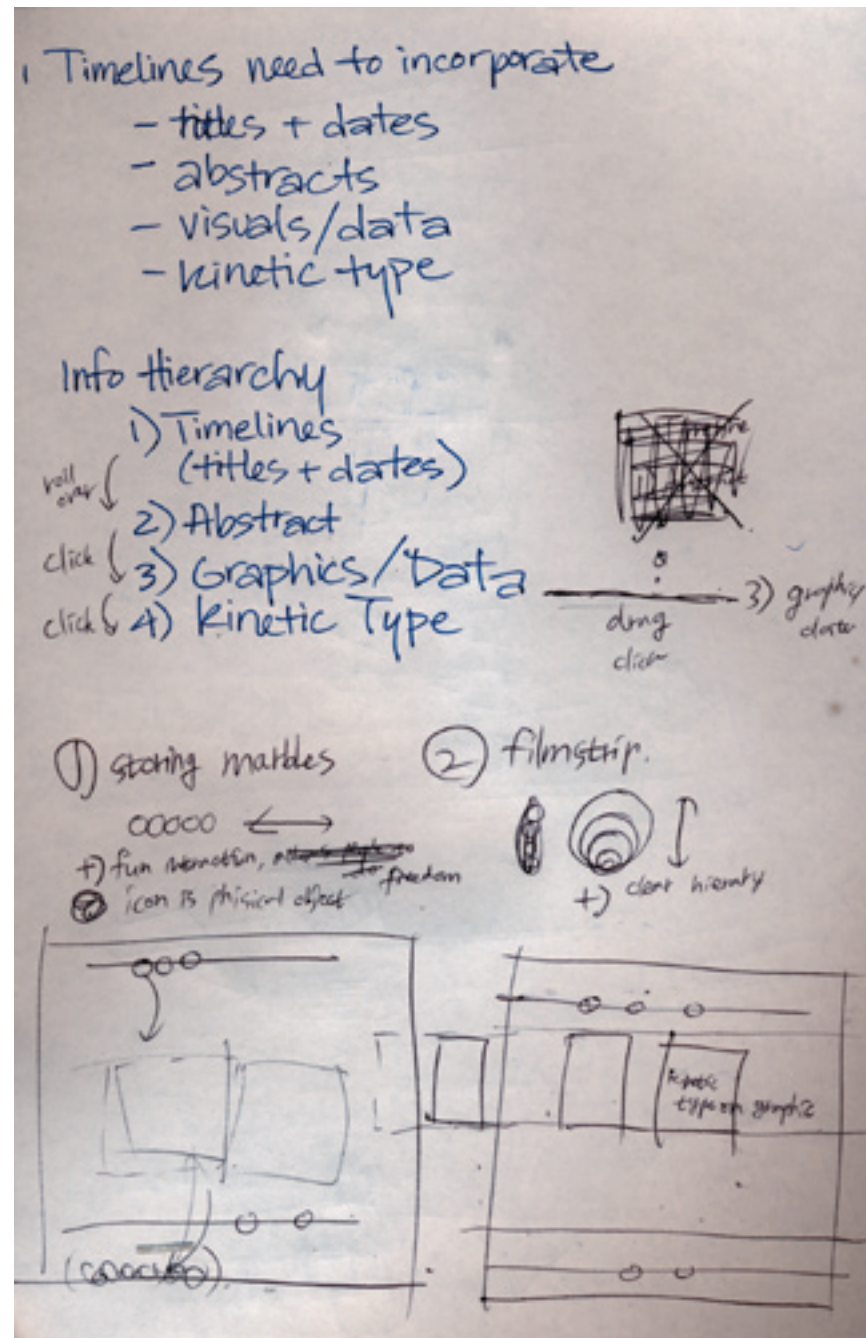 Timelines need to incorporate
- titles + dates
- abstracts
- visuals/data
- kinetic type
Info Hierarchy
1) Timelines
(titles + dates)
roll over
2) Abstract
click
3) Graphics/Data
click
4) Kinetic Type
drag
click
3) graphics
data
① storing marbles
+) fun interaction,
freedom
icon is phisical object
② filmstrip.
+) clear hierarky
kinetic
type on graphic